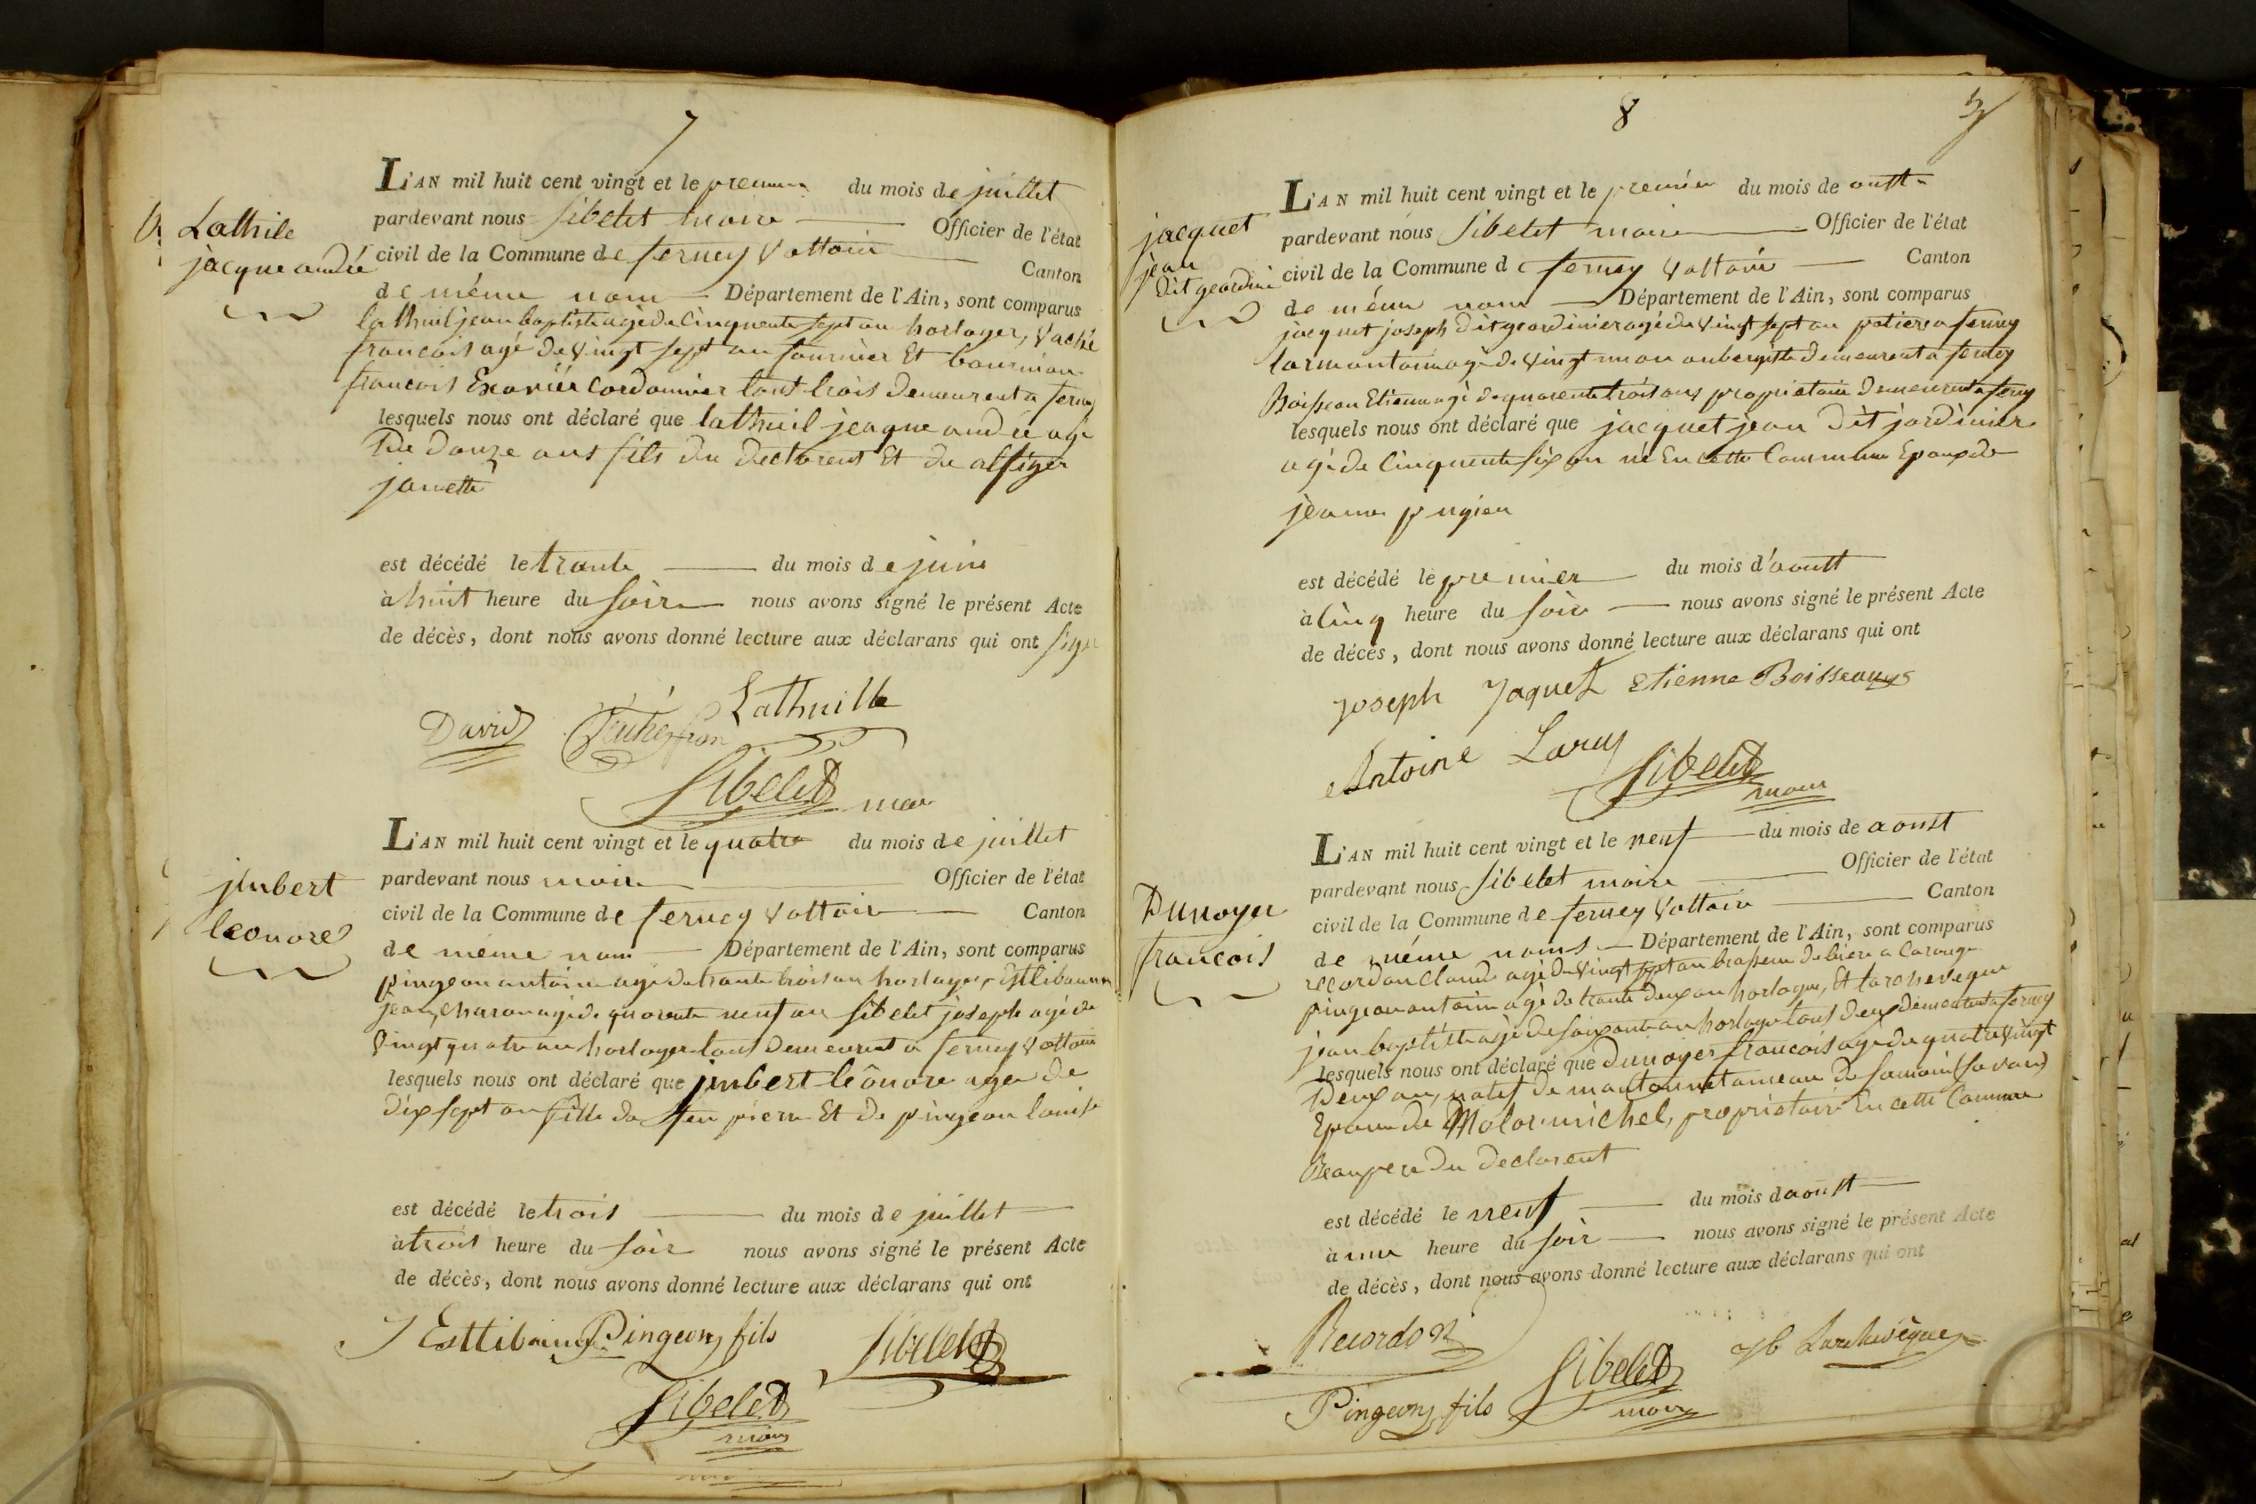 7
Lathile
jacque andré
L'AN mil huit cent vingt et le premier du mois de juillet
pardevant nous Sibelet maire Officier de l'état
civil de la Commune de ferney Voltaire Canton
de même nom Département de l'Ain, sont comparus
lathuil jean baptiste agé de Cinquente sept an horloger, Vaché
francois agé de vingt sept an fournier Et
francois Exavier Cordonnier tout trois demeurent a ferney
lesquels nous ont déclaré que lathuil jcaque andré agé
De douze ans fils du declarent Et de
janette
est décédé le trante du mois de juin
à huit heure du Soir nous avons signé le présent Acte
de décès, dont nous avons donné lecture aux déclarans qui ont signé
David Lathuille
Sibelet maire
jmbert
leonore
L'AN mil huit cent vingt et le quatre du mois de juillet
pardevant nous maire Officier de l'état
civil de la Commune de ferney Voltaire Canton
de même nom Département de l'Ain, sont comparus
pingeon antoine agé de trante trois an horloger,
jean, agé de quarente neuf an Sibelet joseph agé de
vingt quatre an horloger tous demeurent a ferney Voltaire
lesquels nous ont déclaré que jmbert leônore agée de
dix sept an fille de feu piere Et de pingeon louise
est décédé le trois du mois de juillet
à trois heure du Soir nous avons signé le présent Acte
de décès, dont nous avons donné lecture aux déclarans qui ont
J Pingeon fils Sibelet
Sibelet
maire
8
jacquet
jean
Dit geardinié
L'AN mil huit cent vingt et le premier du mois de oust
pardevant nous Sibelet maire Officier de l'état
civil de la Commune de ferney Voltaire Canton
de même nom Département de l'Ain, sont comparus
jacquet joseph dit geardinier agé de vingt sept an potier a ferney
agé de vingt an aubergiste demeurent a ferney
Boisseau Etienne agé de quarente trois ans propriétaire demeurent a ferney
lesquels nous ont déclaré que jacquet jean Dit jardinier
agé de Cinquente six an né En cette Commune Epoux de
jeanne pugien
est décédé le premier du mois d'aoutt
à Cinq heure du Soir nous avons signé le présent Acte
de décès, dont nous avons donné lecture aux déclarans qui ont
Joseph Jaquet Etienne Boisseau
Antoine
Sibelet
maire
Dunoyer
francois
L'AN mil huit cent vingt et le neuf du mois de aoust
pardevant nous Sibelet maire Officier de l'état
civil de la Commune de ferney Voltaire Canton
de même noms Département de l'Ain, sont comparus
recordon Claude agé de vingt sept an brasseur de biere a Carouge
pingeon antoine agé de trante deux an horloger, Et larcheveque
jean baptiste agé de soixante an horloger tous deux demeurent a ferney
lesquels nous ont déclaré que dunoyer francois agé de quatre vingt
Deux an, natif de
Epoux de michel, propriétaire En cette Commune
Beaupere du declarent
est décédé le neuf du mois d aoust
à une heure du Soir nous avons signé le présent Acte
de décès, dont nous avons donné lecture aux déclarans qui ont
Recordon Jb Larchevêque
Pingeon fils Sibelet
maire